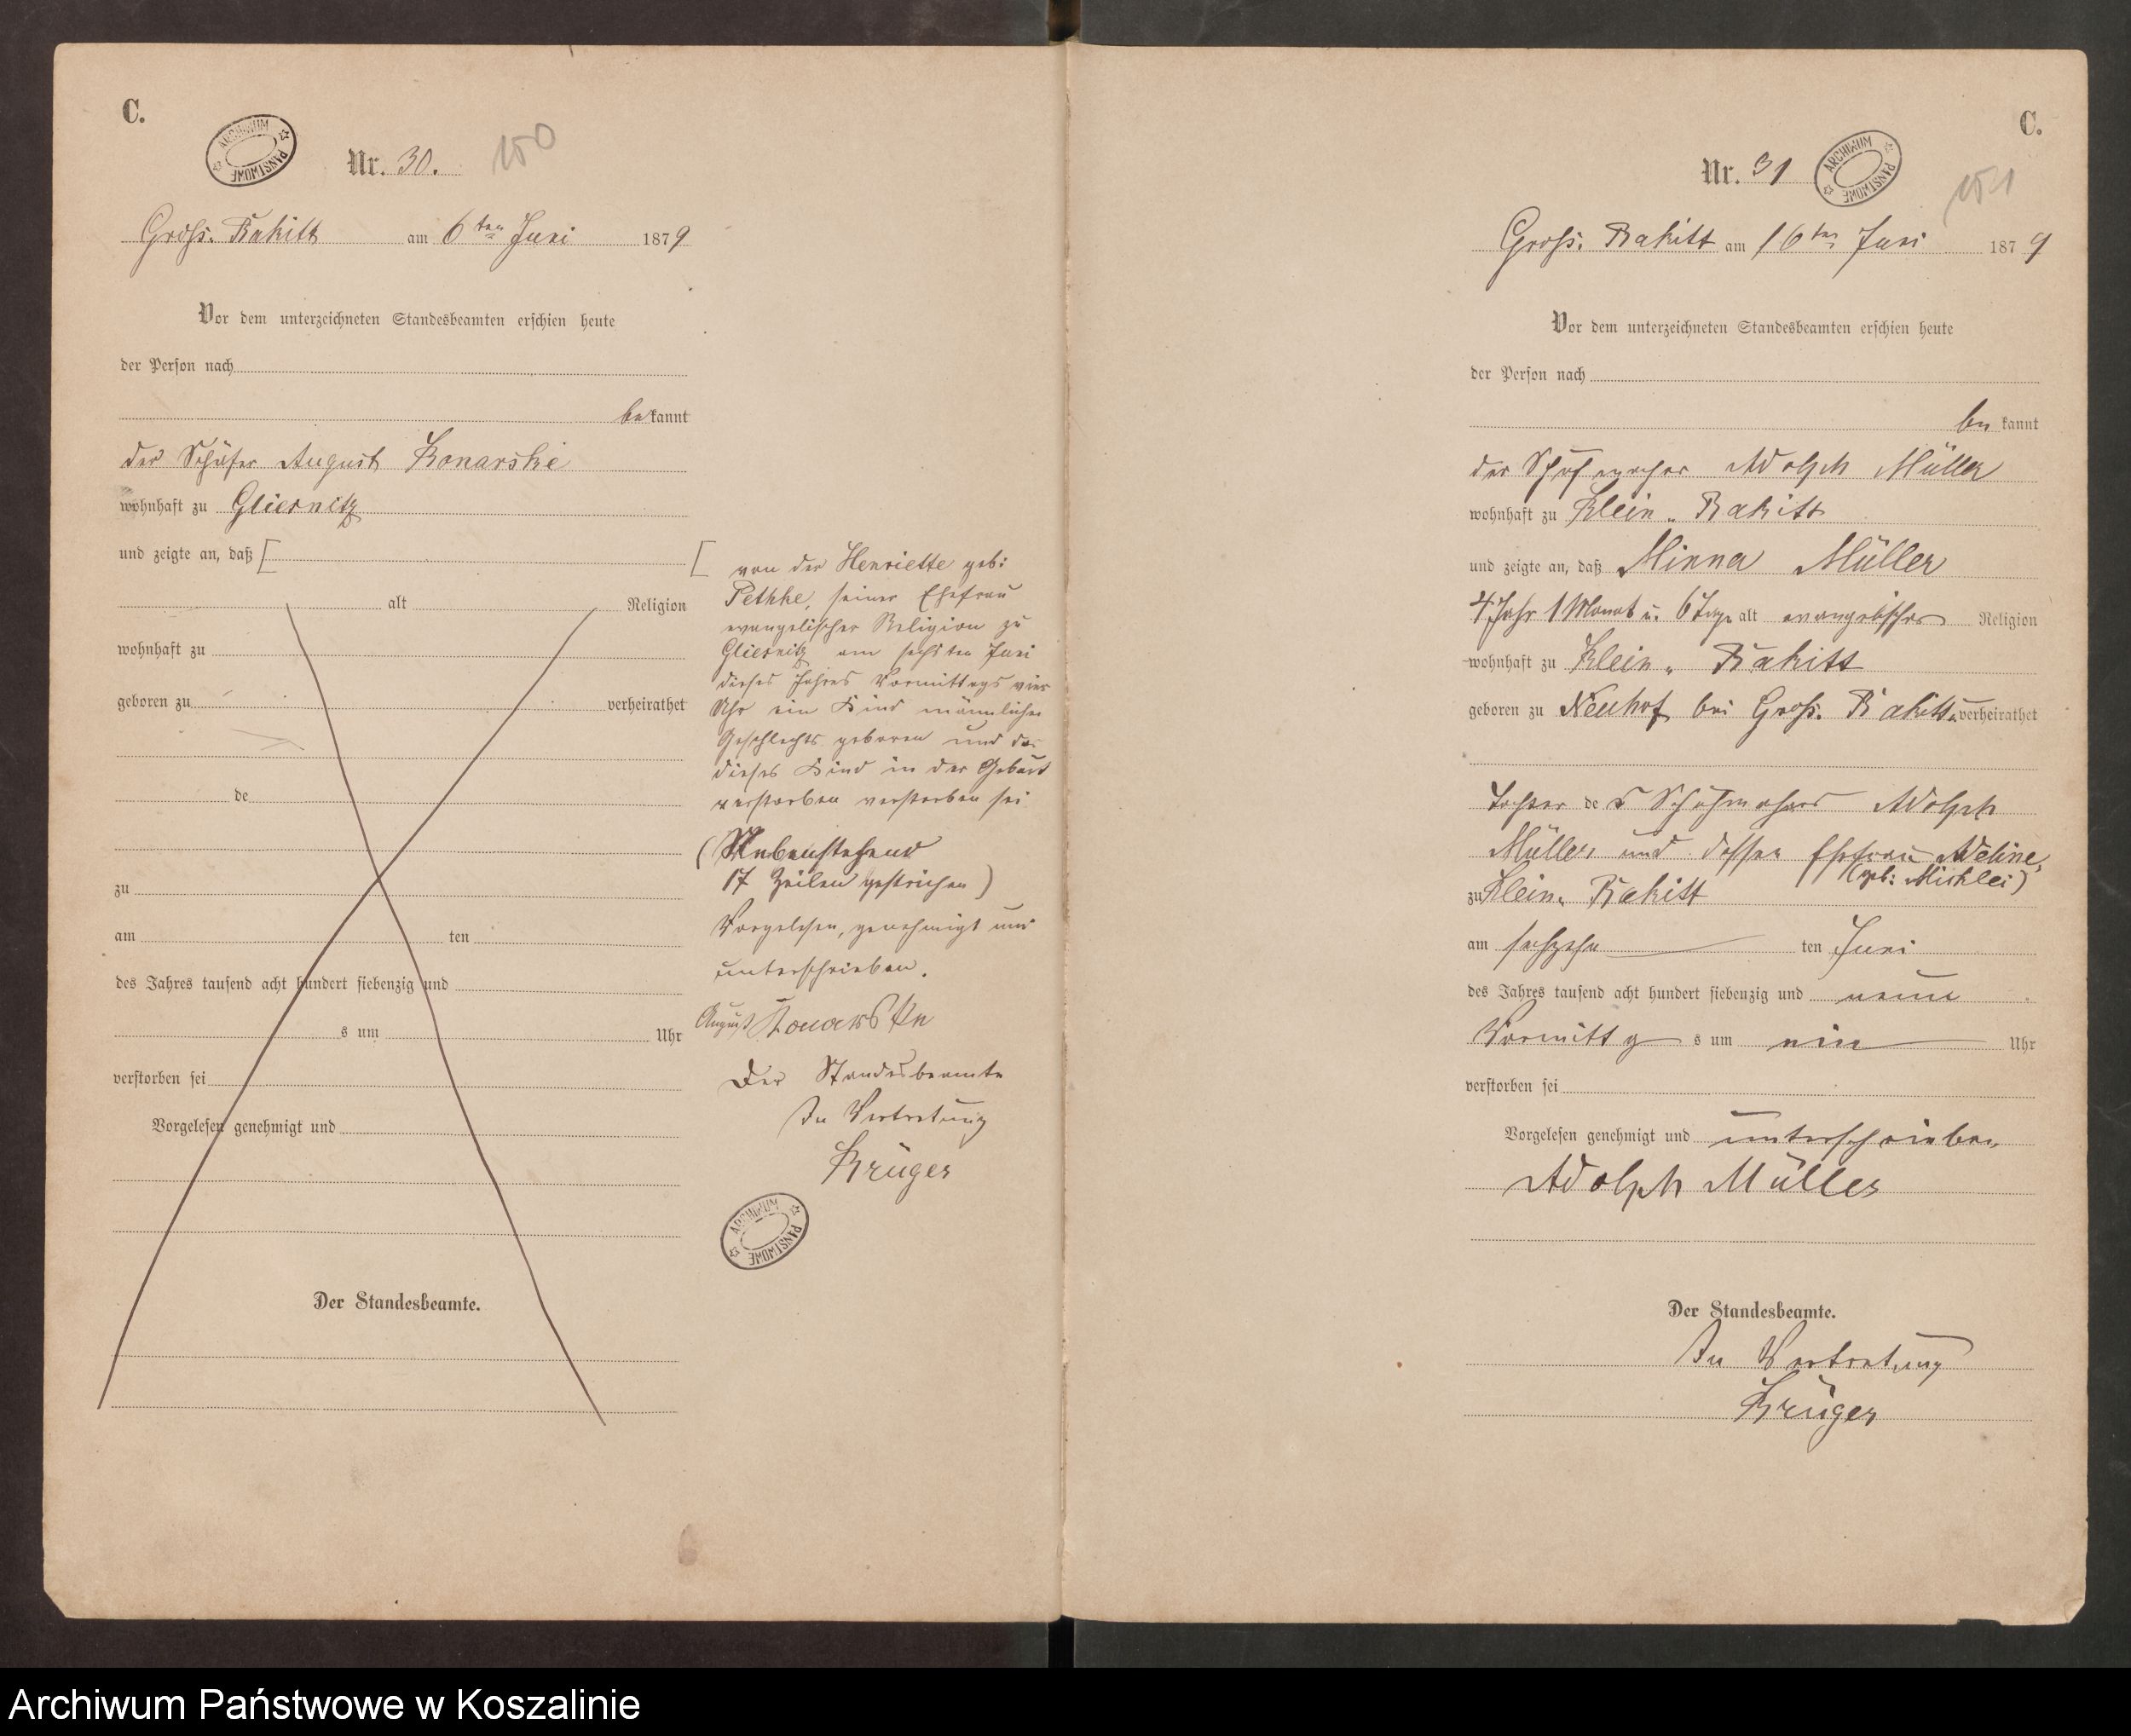 C.
ARCHIWUM PAŃSTWOWE
Nr. 30.
150
Groß. Rakitt am 6ten Juni 1879
Vor dem unterzeichneten Standesbeamten erschien heute
der Person nach
bekannt
der Schäfer August Konarske
wohnhaft zu Gliesnitz
und zeigte an, daß [
alt Religion
wohnhaft zu
geboren zu verheirathet
de
zu
am ten
des Jahres tausend acht hundert siebenzig und
s um Uhr
verstorben sei
Vorgelesen genehmigt und
Der Standesbeamte.
[ von der Henriette geb:
Pethke, seiner Ehefrau
evangelischer Religion zu
Gliesnitz am sechsten Juni
dieses Jahres Vormittags vier
Uhr ein Kind männlichen
Geschlechts geboren und daß
dieses Kind in der Geburt
verstorben verstorben sei
(Nebenstehend
17 Zeilen gestrichen)
Vorgelesen, genehmigt und
unterschrieben.
August Konarske
Der Standesbeamte
In Vertretung
Krüger
ARCHIWUM PAŃSTWOWE
C.
Nr. 31
ARCHIWUM PAŃSTWOWE
151
Groß. Rakitt am 16ten Juni 1879
Vor dem unterzeichneten Standesbeamten erschien heute
der Person nach
bekannt
der Schuhmacher Adolph Müller
wohnhaft zu Klein. Rakitt
und zeigte an, daß Minna Müller
4 Jahr 1 Monat u. 6 Tage alt evangelischer Religion
wohnhaft zu Klein. Rakitt
geboren zu Neuhof bei Groß. Rakitt unverheirathet
Tochter des Schuhmachers Adolph
Müller und dessen Ehefrau Adeline,
(geb: Mischlei)
zu Klein. Rakitt
am sechszehn ten Juni
des Jahres tausend acht hundert siebenzig und neun
Vormittags um ein Uhr
verstorben sei
Vorgelesen genehmigt und unterschrieben
Adolph Müller
Der Standesbeamte.
In Vertretung
Krüger
Archiwum Państwowe w Koszalinie